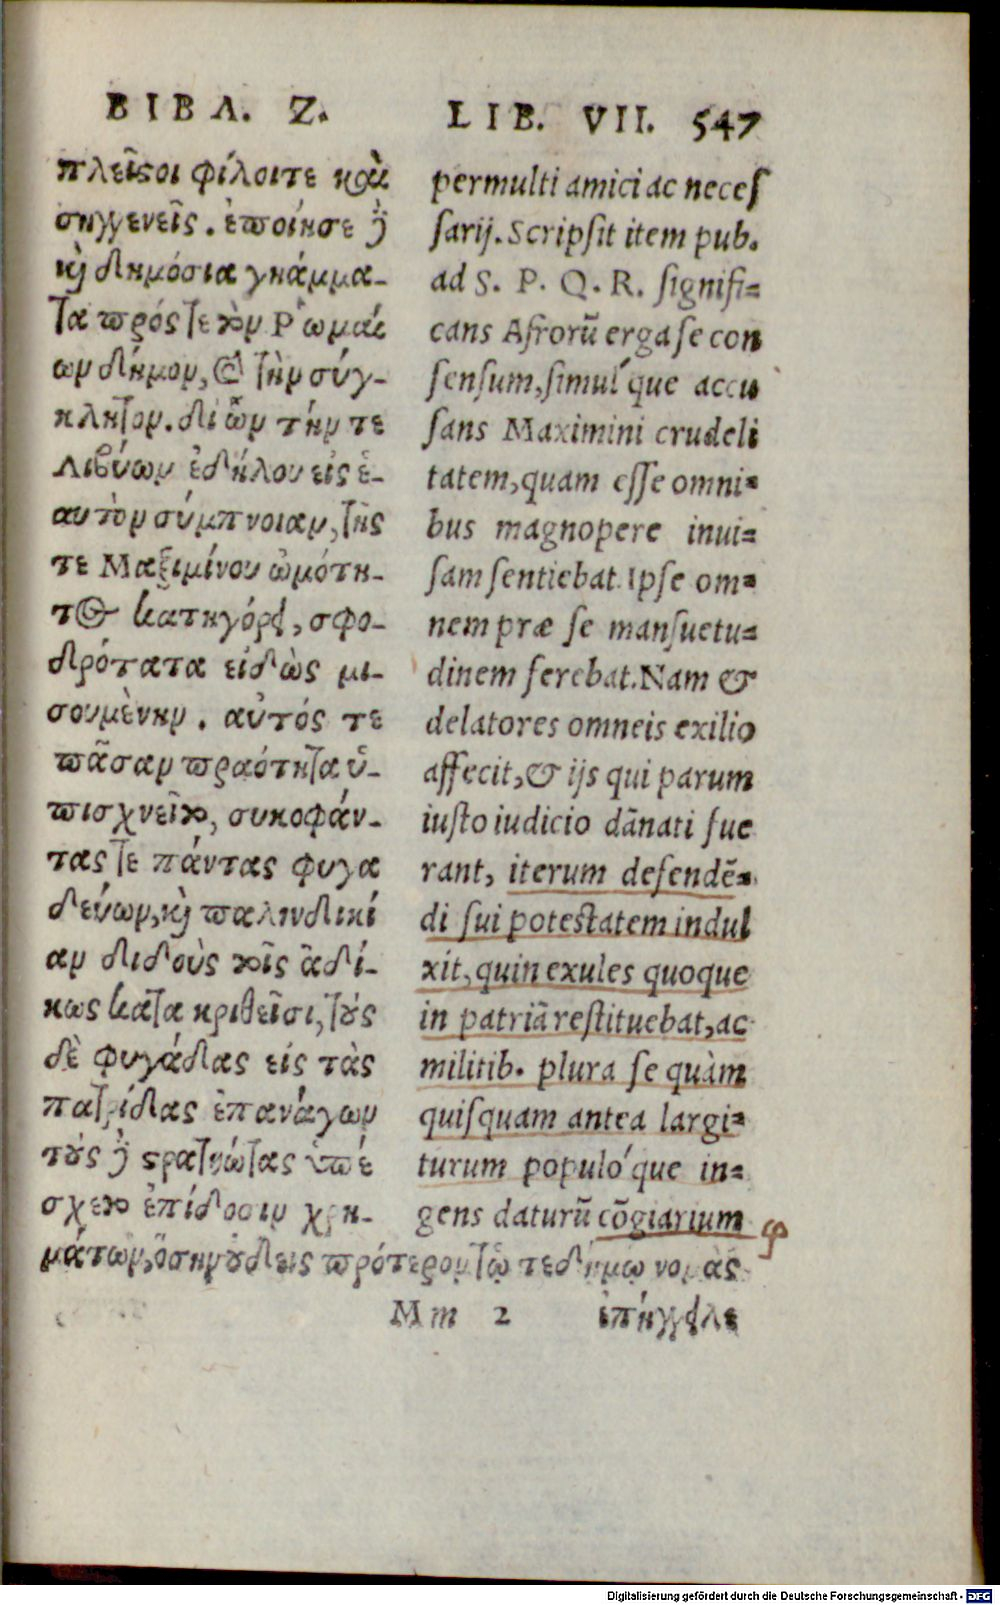 ΒΙΒΛ. Ζ.
πλεῖϛοι φίλοιτε καὶ
συγγενεῖς. ἐποίησε δὲ
κỳ δημόσια γράμμα-
τα πρός τε τὸν Ῥωμαί
ων δῆμον, καὶ τὴν σύγ-
κλητον. δι ὧν τήν τε
Λιβύων ἐδήλου εἰς ἑ-
αυτὸν σύμπνοιαν, τῆς
τε Μαξιμίνου ὠμότη-
τος κατηγόρει, σφο-
δρότατα εἰδὼς μι-
σουμὲνην. αὐτός τε
πᾶσαν πραότητα ὑ-
πισχνεῖτο, συκοφάν-
τας τε πάντας φυγα
δεύων, κỳ παλινδικί
αν διδοὺς τοῖς ἀδί-
κως κατα κριθεῖσι, τȣ́ς
δὲ φυγάδας εἰς τὰς
πατρίδας ἐπανάγων
τȣ́ς δὲ ϛρατιώτας ὑπέ
σχετο ἐπίδοσιν χρη-
μάτων, ὅσην ȣ̓δεις πρότερον τῷ τεδήμῳ νομὰς
LIB. VII. 547
permulti amici ac neceſ
ſarij. Scripſit item pub.
ad S. P. Q. R. ſignifi=
cans Afrorū erga ſe con
ſenſum, ſimuĺ que accu
ſans Maximini crudeli
tatem, quam eſſe omni=
bus magnopere inui=
ſam ſentiebat. Ipſe om=
nem præ ſe manſuetu=
dinem ferebat. Nam &
delatores omneis exilio
affecit, & ijs qui parum
iuſto iudicio dānati fue
rant, iterum defendē=
di ſui poteſtatem indul
xit, quin exules quoque
in patriā reſtituebat, ac
militib. plura ſe quàm
quiſquam antea largi=
turum populó que in=
gens daturū cōgiarium
Mm 2 ἐπήγγειλε
Digitalisierung gefördert durch die Deutsche Forschungsgemeinschaft - DFG